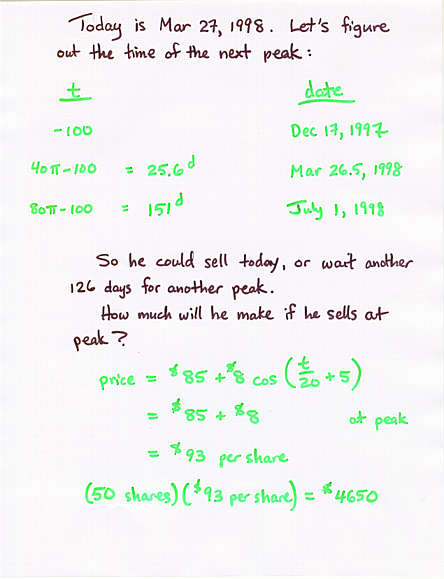 Today is Mar 27, 1998. Let's figure
out the time of the next peak:
t date
-100 Dec 17, 1997
40π-100 = 25.6ᵈ Mar 26.5, 1998
80π-100 = 151ᵈ July 1, 1998
So he could sell today, or wait another
126 days for another peak.
How much will he make if he sells at
peak?
price = $85 + $8 cos (t/20 + 5)
= $85 + $8 at peak
= $93 per share
(50 shares)($93 per share) = $4650